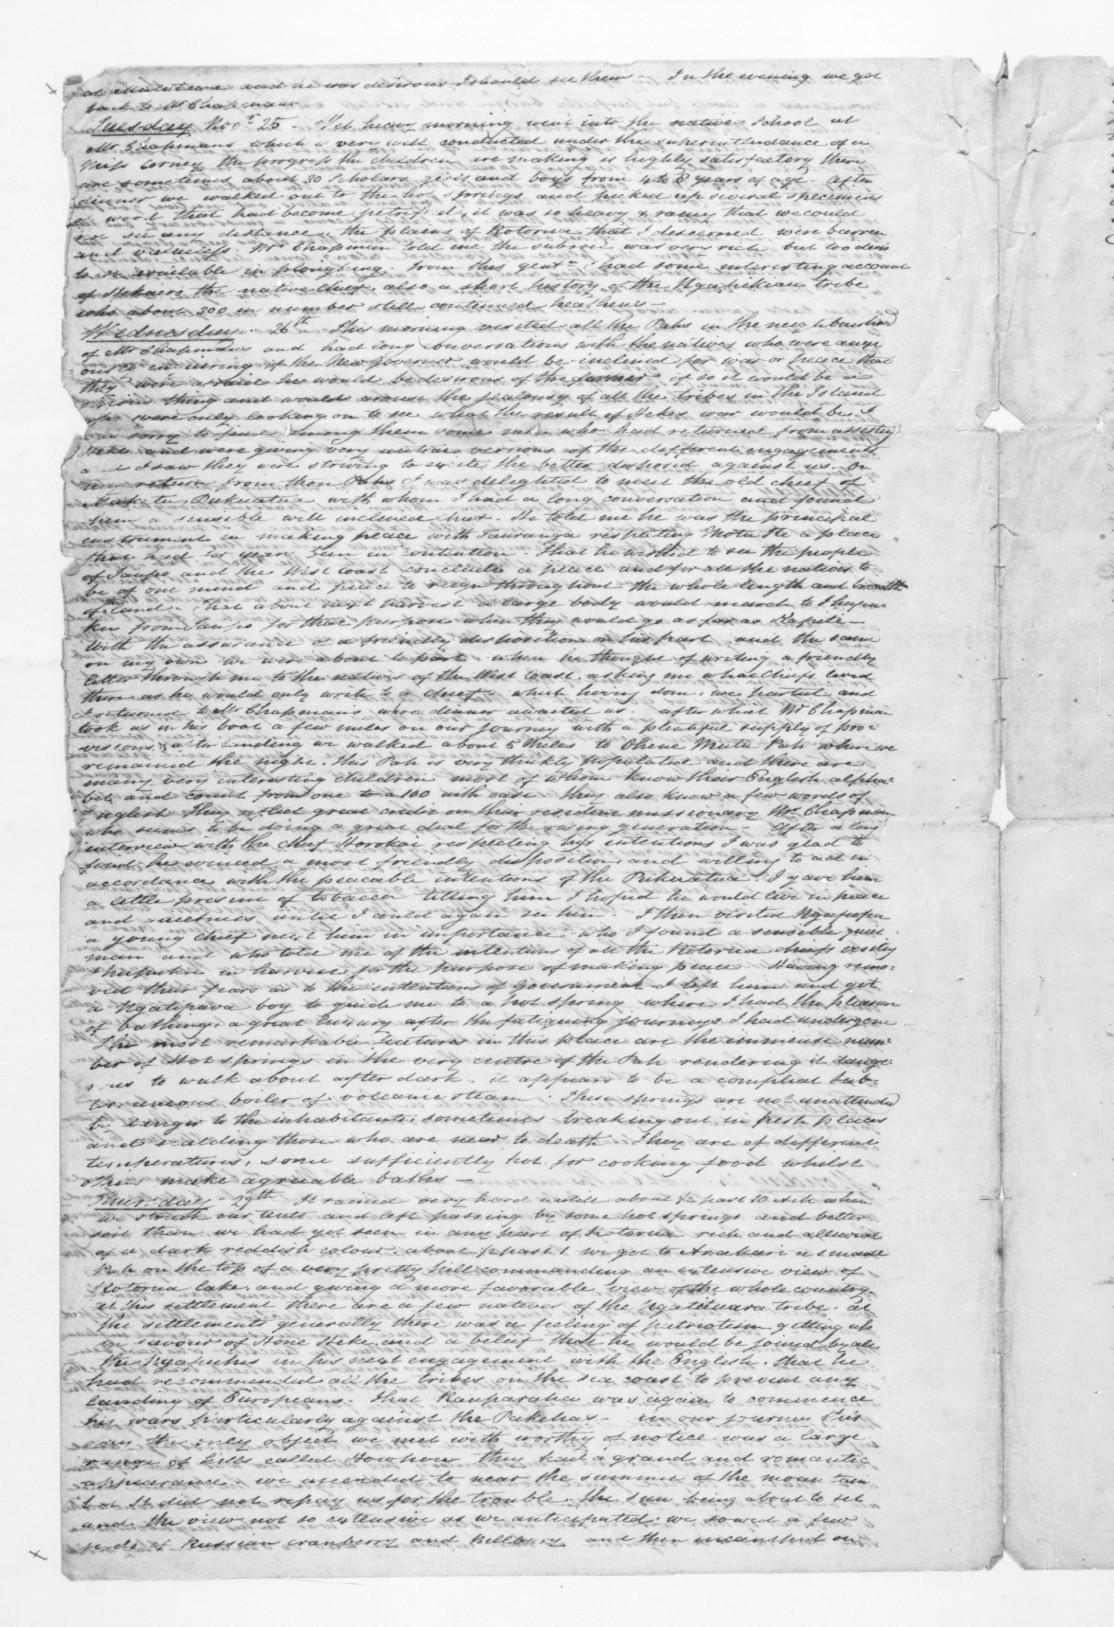 at and he was desirous I should see them - In the evening we got
back to Mr Chapmans
Tuesday Novr 25 - Wet heavy morning went into the native School at
Mr Chapmans which is very well conducted under the superintendance of a
Miss Corney the progress the children are making is highly satisfactory there
are sometimes about 30 Scholars girls and boys from 4 to 8 years of age. After
dinner we walked out to the hot springs and picked up several specimens
of wood that had become petrified, it was so heavy & rainy that we could
not see any distance, the plains of Rotorua that I discerned were barren
and Mr Chapman told me the subsoil was very rich but too deep
to be available in ploughing. From this gentn I had some interesting account
of the native chief, also a short history of the tribe
who about 300 in number still continued heathens -
Wednesday 26th This morning visited all the Pahs in the neighbourhood
of Mr Chapmans and had long conversations with the natives who were anxi
ous in enquiring if the New Governor would be inclined for war or peace that
they were afraid he would be desirous of the former if so it would be a
serious thing and would arouse the jealousy of all the tribes in the Island
who were only looking on to see what the result of Hekes war would be. I
was sorry to find among them some men who had returned from assisting
Heke and were giving very untrue versions of the different engagements
and I saw they were striving to excite the better disposed against us. On
our return from these Pahs I was delighted to meet the old chief of
Maketu, with whom I had a long conversation and found
him a sensible well inclined man. He told me he was the principal
instrument in making peace with Tauranga respecting a place
that had for years been in contention. That he wished to see the people
of Taupo and the West Coast conclude a peace and for all the natives to
be of one mind and peace to reign throughout the whole length and breadth
of land. That about next harvest a large body would march to
from Taupo for that purpose when they would go as far as Kapiti -
With the assurance of a friendly disposition on his part and the same
on my own we were about to part when he thought of writing a friendly
letter through me to the natives of the West Coast, asking me what chiefs lived
there as he would only write to a chief which being done, we parted and
returned to Mr Chapmans were dinner awaited us. after which Mr Chapman
took us in his boat a few miles on our journey with a plentiful supply of pro-
visions, & after landing we walked about 5 Miles to Ohine Mutu Pah where we
remained the night. This Pah is very thickly populated and there are
many very interesting children most of whom know their English alpha-
bet and count from one to a 100 with ease they also know a few words of
English they reflect great credit on their resident missionary Mr Chapman
who seems to be doing a great deal for the rising generation - After a long
interview with the chief Korokai respecting his intentions I was glad to
find he evinced a most friendly disposition and willing to act in
accordance with the peacable intentions of the I gave him
a little present of tobacco telling him I hoped he would live in peace
and until I could again see him. I then visited
a young chief next him in importance who I found a sensible quiet
man and who told me of the intentions of all the Rotorua chiefs visiting
in harvest for the purpose of making peace. Having remo-
ved their fears as to the intentions of government I left him and got
a boy to guide me to a hot spring where I had the pleasure
of bathing, a great luxury after the fatiguing journeys I had undergone
The most remarkable features in this place are the immense num-
ber of Hot springs in the very centre of the Pah rendering it dange-
rous to walk about after dark. it appears to be a complete sub-
terraneous boiler of volcanic steam. These springs are not unattended
by danger to the inhabitants, sometimes breaking out in fresh places
and scalding those who are near to death. They are of different
temperatures, some sufficiently hot for cooking food whilst
others make agreable baths -
Thursday 27th It rained very hard until about ½ past 10 when
we struck our tents and left passing by some hot springs and better
soil than we had yet seen in any part of Rotorua rich and alluvial
of a dark reddish colour. about ½ past 1 we got to a small
Pah on the top of a very pretty hill commanding an extensive view of
Rotorua lake, and giving a more favorable view of the whole country.
at this settlement there are a few natives of the tribe. at
the settlements generally there was a feeling of patriotism getting up
in favour of Hone Heke and a belief that he would be joined by all
the Ngapuhis in his next engagement with the English. that he
had recommended all the tribes on the sea coast to prevent any
landing of Europeans. that Rauparaha was again to commence
his wars particularly against the Pakehas. in our journey this
day the only object we met with worthy of notice was a large
range of hills called they had a grand and romantic
appearance. we ascended to near the summit of the mountain
but it did not repay us for the trouble. the sun being about to set
and the view not so extensive as we anticipated. we sowed a few
seeds of Russian cranberry and Bilbury and then encamped on